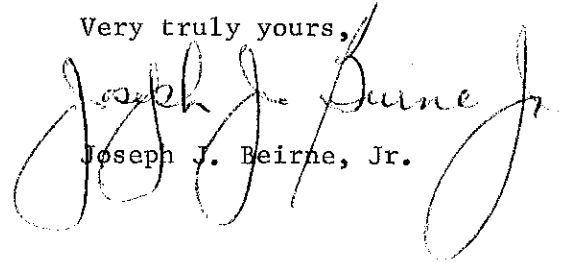 Very truly yours,
Joseph J. Beirne Jr
Joseph J. Beirne, Jr.